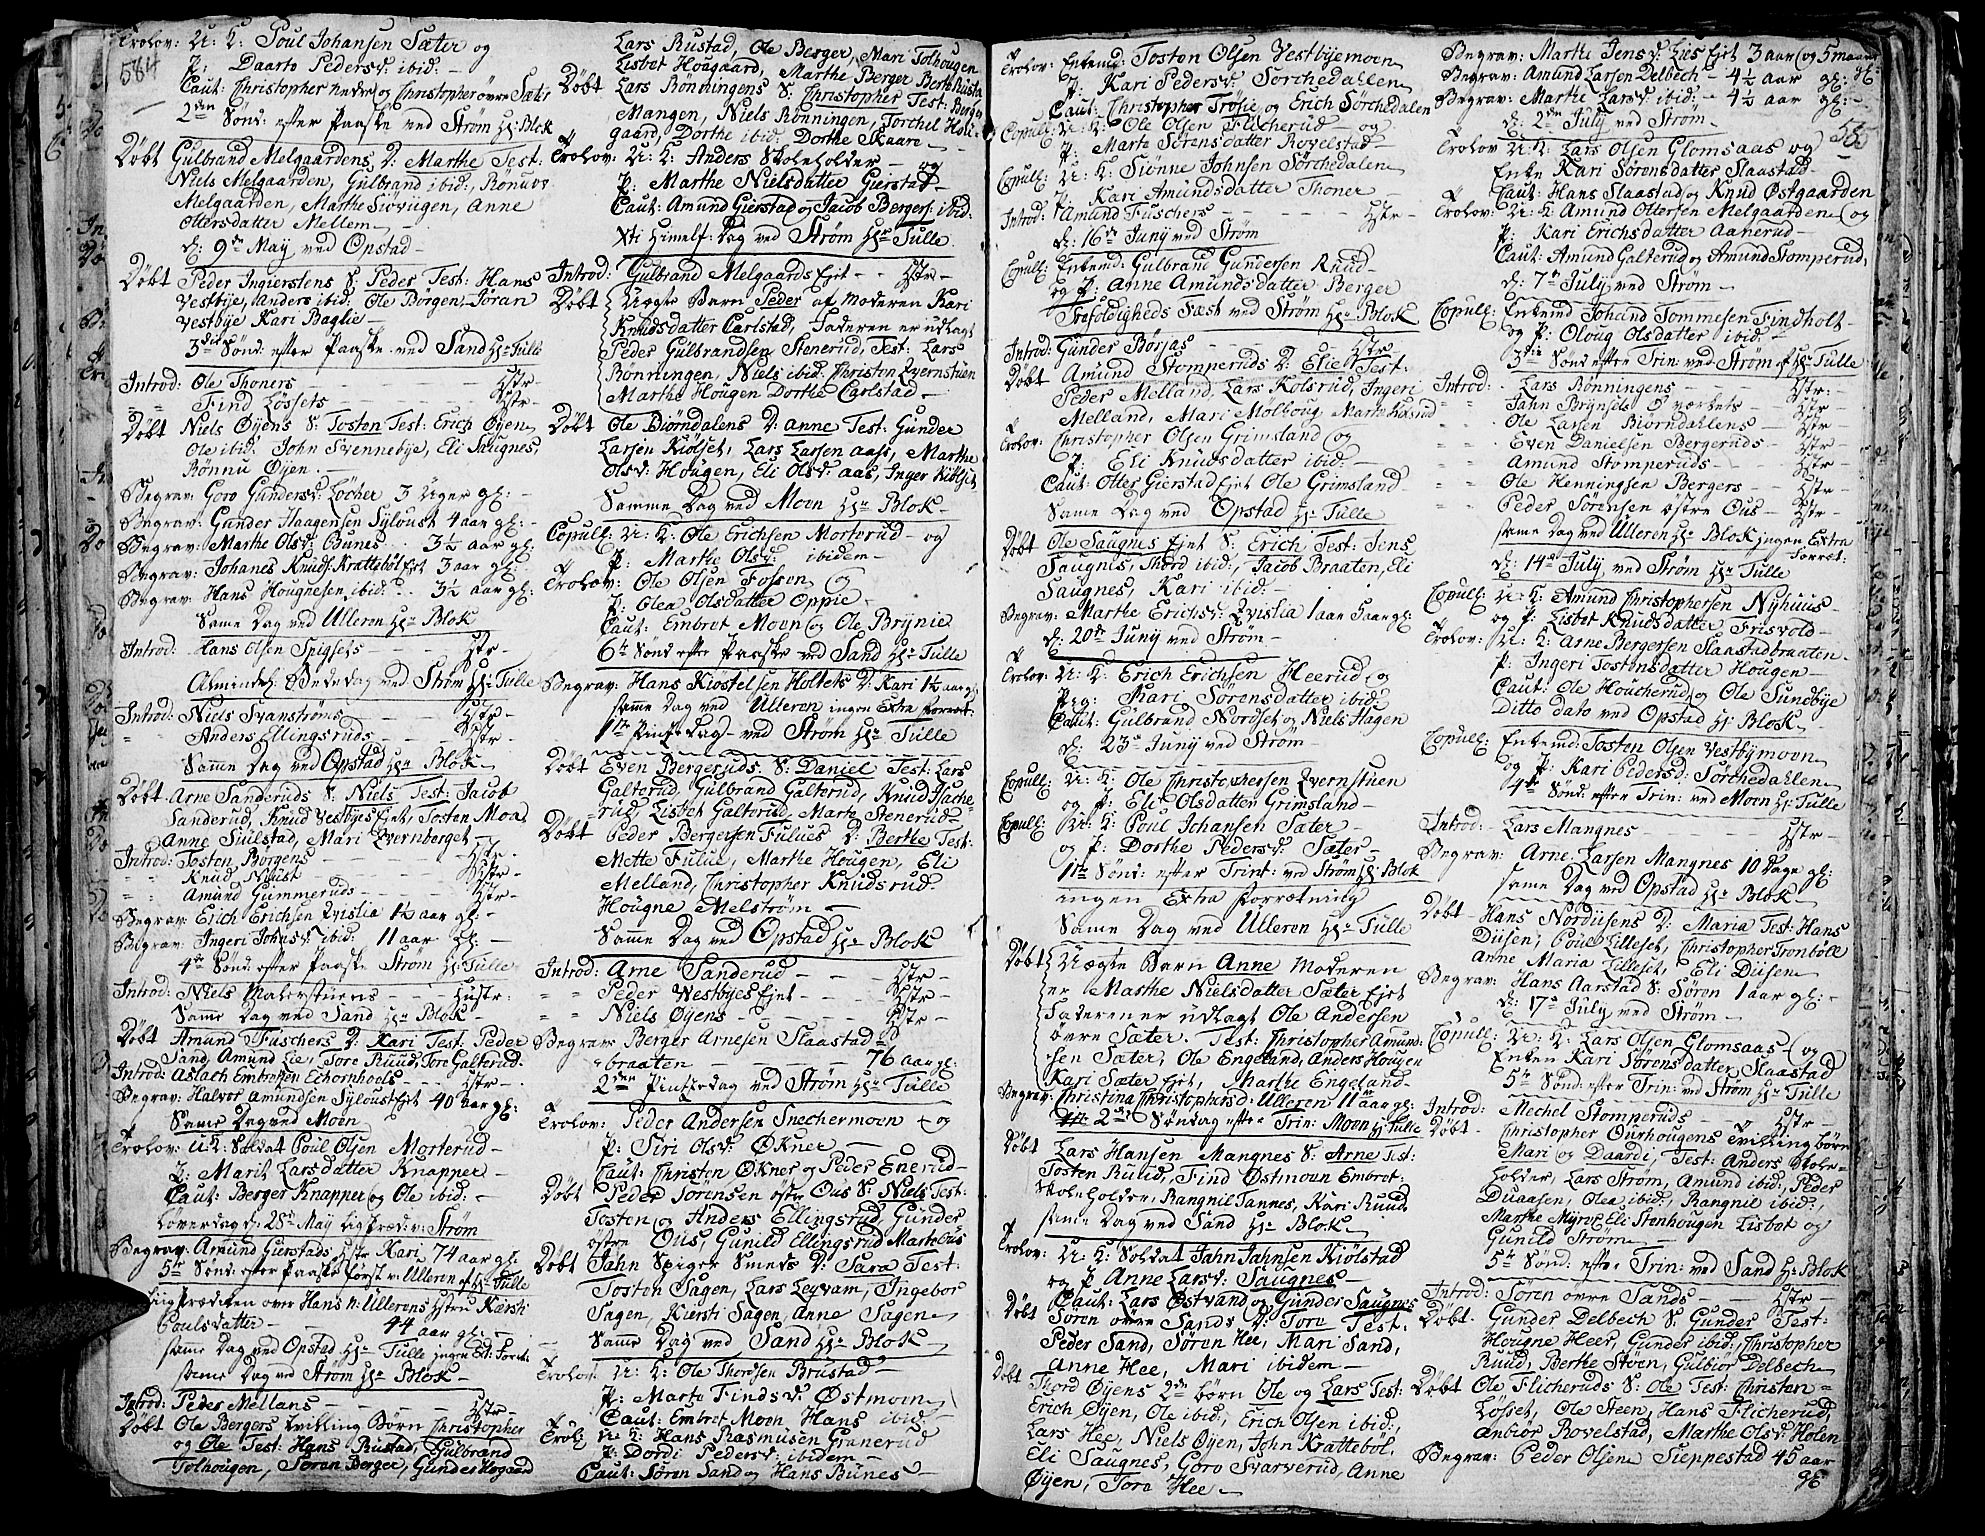 584
Trolov: U: K: Poul Johansen Sæter og
P: Daarte Pedersd: ibid: -
Caut: Christopher nedre og Christopher øvre Sæter
2den Sønd: efter Paaske ved Strøm Hr: Blok
Døbt Gulbrand Melgaardens D: Marthe Test:
Niels Melgaarden, Gulbrand ibid:, Rønnue
Melgaarden, Marthe Siviigen, Anne
Ottersdatter Mellem -
d: 9de May ved Opstad -
Døbt Peder Ingierstens S: Peder Test: Hans
Vestbÿe, Anders ibid: Ole Borgen, Jøran
Vestbÿe Kari Baglie -
3die Sønd: efter Paaske ved Sand Hr: Tulle
Introd: Ole Thoners - - - Hstr -
" " Find Løssets - - - Hstr -
Døbt Niels Øÿens S: Tosten Test: Erich Øÿen
Ole ibid: John Svennebÿe, Eli Saugnes,
Rønnu Øÿen. -
Begrav: Goro Gundersd: Løcher 3 Uger gl: -
Begrav: Gunder Haagensen Sÿloust 4 aar gl: -
Begrav: Marthe Olsd: Bunes - 3½ aar gl: -
Begrav: Johanes Knuds: Krattebøl Ejet 3 aar gl: -
Begrav: Hans Hougnesen ibid: - 3½ aar gl: -
Same Dag ved Ulleren Hr: Blok
Introd: Hans Olsen Spigsets - - - Hstr -
Almindel: Bededag ved Strøm Hr: Tulle
Introd: Niels Svanstrøms - - Hstr -
" Anders Ellingsruds - - - Hstr -
Samme Dag ved Opstad Hr: Blok -
Døbt Arne Sanderuds S: Niels Test: Jacob
Sanderud, Knud Vestbÿes Ejet, Tosten Moa,
Anne Siulstad, Mari Qvernberget -
Introd: Tosten Borgens - - Hstr -
" " Knud Nuust - - - Hstr -
" " Amund Gummeruds - - Hstr -
Begrav: Erich Erichsen Qvislia 1½ aar gl: -
Begrav: Ingeri Johnsd: ibid: 11 aar gl: -
4de Sønd: efter Paaske Strøm Hr: Tulle
Introd: Niels Malerstuens - - - Hustr: -
Same Dag ved Sand Hr: Blok -
Døbt Amund Fuschers D: Kari Test: Peder
Sand, Amund Lie, Tore Ruud, Tore Galterud.
Introd: Aslach Embretsen Echornhools - - Hstr -
Begrav: Halvor Amundsen Sÿloust Ejet 40 aar gl:
Same Dag ved Moen
Trolov: U: K: Soldat Poul Olsen Morterud -
P: Marit Larsdatter Knapper -
Caut: Berger Knapper og Ole ibid: -
Løverdag d: 28de May Ligpræd: v: Strøm
Begrav: Amund Gierstads Hstr Kari 74 aar gl:
5te Sønd: efter Paaske først v: Ulleren af Hr: Tulle
Ligprædiken over Hans n: Ullerens Hstru Kiersti
Poulsdatter - - - 44 aar gl: -
same Dag ved Opstad Hr: Tulle ingen Ext: Forret:
same Dag ved Strøm Hr: Blok -
Introd: Peder Mellans - - - Hstr -
Døbt Ole Bergers Tvilling Børn Christopher
og Ole Test: Hans Rustad, Gulbrand
Tolhougen, Søren Berger, Gunder Hougaard
Lars Rustad, Ole Berger, Mari Tolhougen
Lisbet Hougaard, Marthe Berger Berthe Rustad
Døbt Lars Rønningens S: Christopher Test: Børge
Mangen, Niels Rønningen, Torchel Hole-
gaard, Dorthe ibid: Dorthe Skaare -
Trolov: U: K: Anders Skoleholder - og
P: Marthe Nielsdatter Gierstad -
Caut: Amund Gierstad og Jacob Bergers: ibid:
Xti Himelf: Dag ved Strøm Hr: Tulle.
Introd: Gulbrand Melgaards Ejet - - Hstr -
Døbt Uægte Barn Peder af Moderen Kari
Knudsdatter Carlstad, Faderen er udlagt
Peder Gulbrandsen Stenerud, Test: Lars
Rønningen, Niels ibid: Christen Qvernstuen
Marthe Hougen Dorthe Carlstad -
Døbt Ole Biørndalens D: Anne Test: Gunder
Larsen Kiølset, Lars Larsen aass, Marthe
Olsd: Hougen, Eli Olsd: aas, Inger Kiklset
Samme Dag ved Moen Hr: Blok -
Copull: U: K: Ole Erichsen Morterud - og
P: Marthe Olsd: ibidem -
Trolov: Ole Olsen Fossen og
P: Olea Olsdatter Oppie -
Caut: Embret Moen og Ole Brÿnie
6te Sønd: efter Paaske ved Sand Hr: Tulle
Begrav: Hans Kiøstelsen Holtets D: Kari 1½ aar gl:
same Dag ved Ulleren ingen Extra forret:
1ste Pinse Dag - ved Strøm Hr: Tulle
Døbt Even Bergeruds S: Daniel Test: Lars
Galterud, Gulbrand Galterud, Knud Flache-
rud, Lisbet Galterud, Marte Stenerud -
Døbt Peder Bergersen Fulues D: Berthe Test:
Mette Fulue, Marthe Hougen, Eli
Melland, Christopher Knudsrud.
Hougne Melstrøm -
Samme Dag ved Opstad Hr: Blok
Introd: Arne Sanderud - - - Hstr -
" " Peder Westbÿes Ejet - - - Hstr -
" " Niels Øÿens - - - - Hstr -
Begrav: Berger Arnesen Slaastad-
braaten - - - - 76 aar gl:
2den Pinsedag ved Strøm Hr: Tulle
Trolov: Peder Andersen Snechermoen - og
P: Siri Olsd: Økner -
Caut: Christen Økner og Peder Enerud -
Døbt Peder Sørensen østre Ous S: Niels Test:
Tosten og Anders Ellingsrud, Gunder
østre Ous, Gunild Ellingsrud Marte Ous
Døbt Jahn Spiger Smeds D: Sara Test:
Tosten Sagen, Lars Leÿram, Ingebor
Sagen, Kiersti Sagen, Anne Sagen -
Samme Dag ved Sand Hr: Blok -
Trolov: U: K: Ole Thordsen Brustad
P: Marte Findsd: Østmoen
Caut: Embret Moen, Hans ibid: -
Trolov: U: K: Hans Rasmusen Granerud
P: Dordi Pedersd: ibidem -
Caut: Søren Sand og Hans Bunes -
585
Trolov: Enkemd: Tosten Olsen Vestbÿemoen
P: Kari Pedersd: Sørchedalen
Caut: Christopher Trøsie og Erich Sørchedalen
Copull: U: K: Ole Olsen Flicherud - og
P: Marte Sørensdatter Rovelstad -
Copull: U: K: Siønne Johnsen Sørchedalen
P: Kari Amundsdatter Thoner -
Introd: Amund Fuschers - - - Hstr -
d: 16de Junÿ ved Strøm
Copull: Enkemd: Gulbrand Gundersen Ruud -
og P: Anne Amundsdatter Berger
Trefoldigheds Fest ved Strøm Hr: Blok
Introd: Gunder Børjas - - - Hstr -
Døbt Amund Stomperuds D: Elie Test:
Peder Melland, Lars Kolsrud, Ingeri
Melland, Mari Molboug, Marte Kolsrud
Trolov: Christopher Olsen Grimsland og
P: Eli Knudsdatter ibid: -
Caut: Otter Gierstad Ejet Ole Grimsland -
Same Dag ved Opstad Hr: Tulle
Døbt Ole Saugnes Ejet S: Erich, Test: Jens
Saugnes, Thord ibid:, Jacob Braaten, Eli
Saugnes, Kari ibid: -
Begrav: Marthe Erichsd: Qvislia 1 aar 5 aar gl:
d: 20de Junÿ ved Strøm -
Trolov: U: K: Erich Erichsen Heerud og
Pig: Mari Sørensdatter ibid:
Caut: Gulbrand Nordset og Niels Hagen
d: 23de Junÿ ved Strøm -
Copull: U: K: Ole Christophersen Qvernstuen
og P: Eli Olsdatter Grimsland -
Copull: U: K: Poul Johansen Sæter -
og P: Dorthe Pedersd: Sæter -
1ste Sønd: efter Trint: ved Strøm Hr: Blok
ingen Extra Forretning
Same Dag ved Ulleren Hr: Tulle
Døbt Uægte Barn Anne Moderen
er Marthe Nielsdatter Sæter Ejet
Faderen er udlagt Ole Andersen
øvre Sæter. Test: Christopher Amund-
sen Sæter, Ole Engeland, Anders Hougen
Kari Sæter Ejet, Marthe Engeland -
Begrav: Christina Christophersd: Ulleren 11 aar gl:
2den Søndag efter Trin: Moen Hr: Tulle
Døbt Lars Hansen Mangnes S: Arne Test:
Tosten Ruud, Find Østmoen Embret
Skoleholder, Rangnil Tannes, Kari Ruud
same Dag ved Sand Hr: Blok
Trolov: U: K: Soldat Jahn Jahnsen Kiølstad
og P: Anne Larsd: Saugnes -
Caut: Lars Østvand og Gunder Saugnes
Døbt Søren øvre Sands D: Tore Test:
Peder Sand, Søren Hee, Mari Sand,
Anne Hee, Mari ibidem -
Døbt Thord Øÿens 2de børn Ole og Lars Test:
Erich Øÿen, Ole ibid:, Erich Olsen ibid:,
Lars Hee, Niels Øÿen, John Krattebøl,
Eli Saugnes, Goro Svarverud, Anne
Øÿen, Tora Hee -
Begrav: Marthe Jensd: Lies Ejet 3 aar og 5 maaner gl:
Begrav: Amund Larsen Delbech - 4½ aar gl:
Begrav: Marthe Larsd: ibid: - 4½ aar gl: -
d: 2den Julÿ ved Strøm -
Trolov U: K: Lars Olsen Glomsaas og
Enke Kari Sørensdatter Slaastad -
Caut: Hans Slaastad og Knud Østgaarden
Trolov: U: K: Amund Ottersen Melgaarden og
P: Kari Erichsdatter Aanerud -
Caut: Amund Galterud og Amund Stomperud,
d: 7de Julÿ ved Strøm -
Copull: Enkemd Johand Tommesen Findholt -
og P: Oloug Olsdatter ibid: -
3die Sønd: efter Trin: ved Strøm af Hr: Tulle
Introd: Lars Rønningens - Hstr -
" " Jahn Brÿnsels værkets - Hstr -
" " Ole Larsen Biørndahlens - Hstr -
" " Even Danielsen Bergeruds - Hstr -
" " Amund Stomperuds - Hstr -
" " Ole Henningsen Bergers - Hstr -
" " Peder Sørensen østre Ous - Hstr -
same Dag ved Ulleren Hr: Blok ingen Extra
Forret:
d: 14de Julÿ ved Strøm Hr: Tulle
Copull: U: K: Amund Christophersen Nÿhuus -
og P: Lisbet Knudsdatter Frisvold -
Trolov: U: K: Arne Bergersen Slaastadbraaten -
P: Ingeri Tostensdatter Hougen -
Caut: Ole Houcherud og Ole Sundbÿe
Ditto dato ved Opstad Hr: Blok
Copull: Enkemd: Tosten Olsen Vestbÿmoen
og P: Kari Pedersd: Sørchedahlen
4de Sønd: efter Trin: ved Moen Hr: Tulle
Introd: Lars Mangnes - - - Hstr -
Begrav: Arne Larsen Mangnes 10 Dage gl:
same Dag ved Opstad Hr: Blok -
Døbt Hans Norduisens D: Maria Test: Hans
Diisen, Poul Lilleset, Christopher Trombøle
Anne Maria Lilleset, Eli Diisen
Begrav: Hans Aarstad S: Søren 1 aar gl: -
d: 17de Julÿ ved Strøm -
Copull: U: K: Lars Olsen Glomsaas - og
Enken Kari Sørensdatter Slaastad
5te Sønd: efter Trin: ved Strøm Hr: Tulle
Introd: Mechel Stomperuds - Hstr -
Døbt Christopher Ourhougens Tvilling børn
Mari og Daardi, Test: Anders Skole-
holder, Lars Strøm, Amund ibid:, Peder
Duaasen, Olea ibid:, Rangnie ibid:,
Marthe Mÿrer, Eli Stenhougen Lisbet og
Gunild Strøm -
5te Sønd: efter Trin: ved Sand Hr: Blok
Introd: Søren øvre Sands - - Hstr -
Døbt Gunder Delbech S: Gunder Test:
Hougne Heer, Gunder ibid:, Christopher
Ruud, Berthe Støen, Gulbiør Delbech
Døbt Ole Flicheruds S: Ole Test: Christen
Løsset, Ole Steen, Hans Flicherud,
Anbiør Rovelstad, Marthe Olsd: Holen
Begrav: Peder Olsen Sieppestad 45 aar
gl: